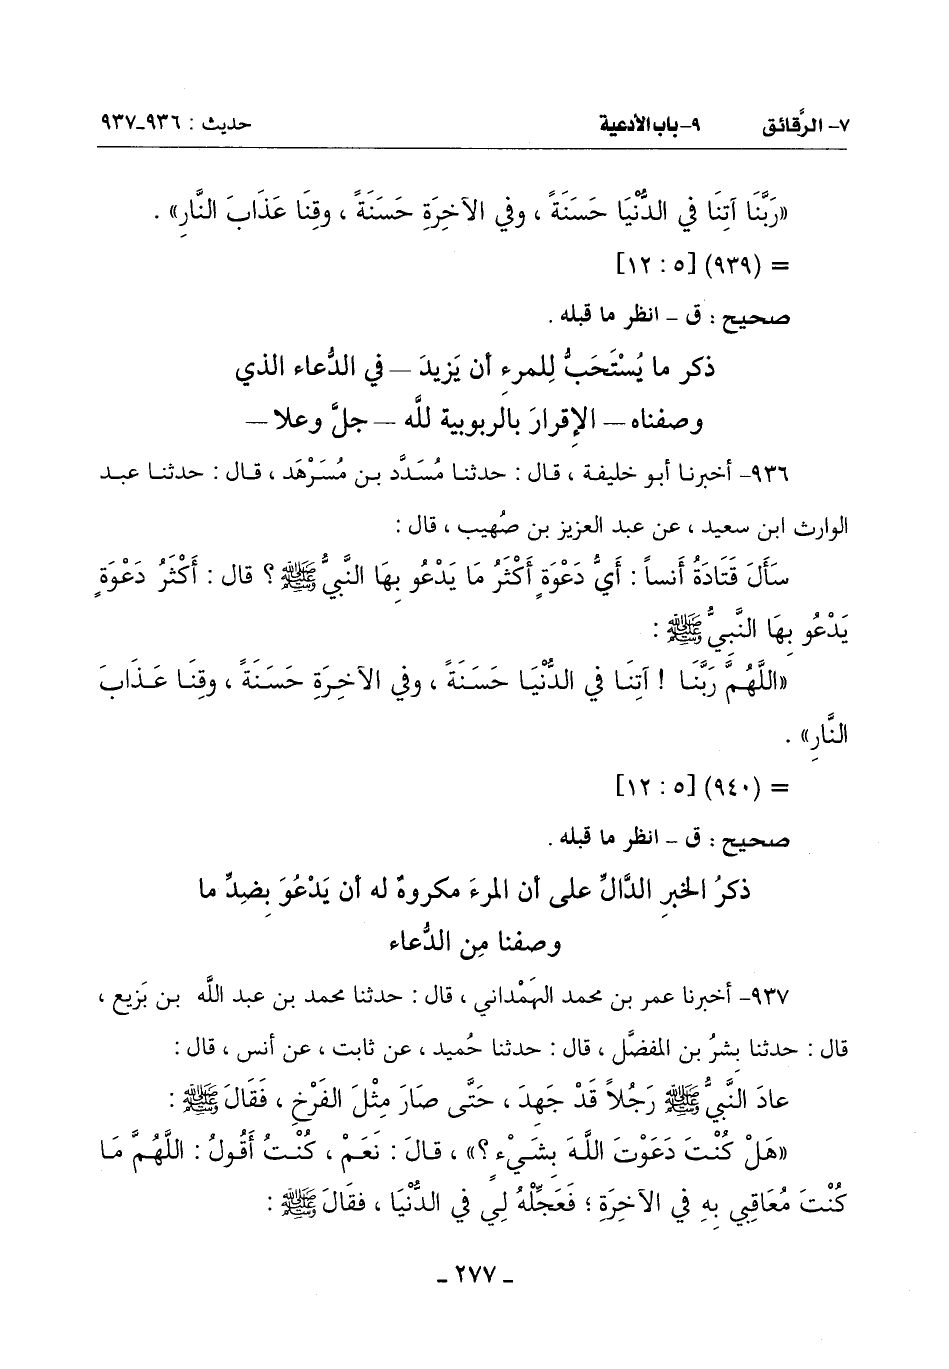 ٧- الرَّقائق ٩-باب الأدعية حديث : ٩٣٦-٩٣٧
«رَبَّنَا آتِنَا في الدُّنْيَا حَسَنَةً ، وفي الآخِرَةِ حَسَنَةً ، وقِنَا عَذَابَ النَّارِ» .
= (٩٣٩) [٥ : ١٢]
صحيح : ق – انظر ما قبله .
ذكر ما يُسْتَحَبُّ لِلمرءِ أن يَزيدَ – في الدُّعاء الذي
وصفناه – الإقرارَ بالربوبيةِ للَّه – جلَّ وعلا –
٩٣٦- أخبرنا أبو خليفة ، قال : حدثنا مُسَدَّد بن مُسَرْهَد ، قال : حدثنا عبد
الوارث ابن سعيد ، عن عبد العزيز بن صُهيب ، قال :
سَأَلَ قَتَادَةُ أنساً : أَيُّ دَعْوَةٍ أَكْثَرُ مَا يَدْعُو بِهَا النَّبِيُّ ﷺ ؟ قال : أَكْثَرُ دَعْوَةٍ
يَدْعُو بِهَا النَّبِيُّ ﷺ :
«اللَّهُمَّ رَبَّنَا ! آتِنَا في الدُّنْيَا حَسَنَةً ، وفي الآخِرَةِ حَسَنَةً ، وقِنَا عَذَابَ
النَّارِ» .
= (٩٤٠) [٥ : ١٢]
صحيح : ق – انظر ما قبله .
ذكرُ الخبرِ الدَّالِّ على أن المرءَ مكروهٌ له أن يَدْعُوَ بِضِدِّ ما
وصفنا مِن الدُّعاء
٩٣٧- أخبرنا عمر بن محمد الهَمْداني ، قال : حدثنا محمد بن عبد اللَّه بن بَزيع ،
قال : حدثنا بِشرُ بن المفضَّل ، قال : حدثنا حُميد ، عن ثابت ، عن أنس ، قال :
عادَ النَّبِيُّ ﷺ رَجُلاً قَدْ جَهِدَ ، حَتَّى صَارَ مِثْلَ الفَرْخِ ، فَقَالَ ﷺ :
«هَلْ كُنْتَ دَعَوْتَ اللَّهَ بِشَيْءٍ ؟» ، قالَ : نَعَمْ ، كُنْتُ أَقُولُ : اللَّهُمَّ مَا
كُنْتَ مُعَاقِبِي بِهِ فِي الآخِرَةِ ؛ فَعَجِّلْهُ لِي فِي الدُّنْيَا ، فقَالَ ﷺ :
- ٢٧٧ -